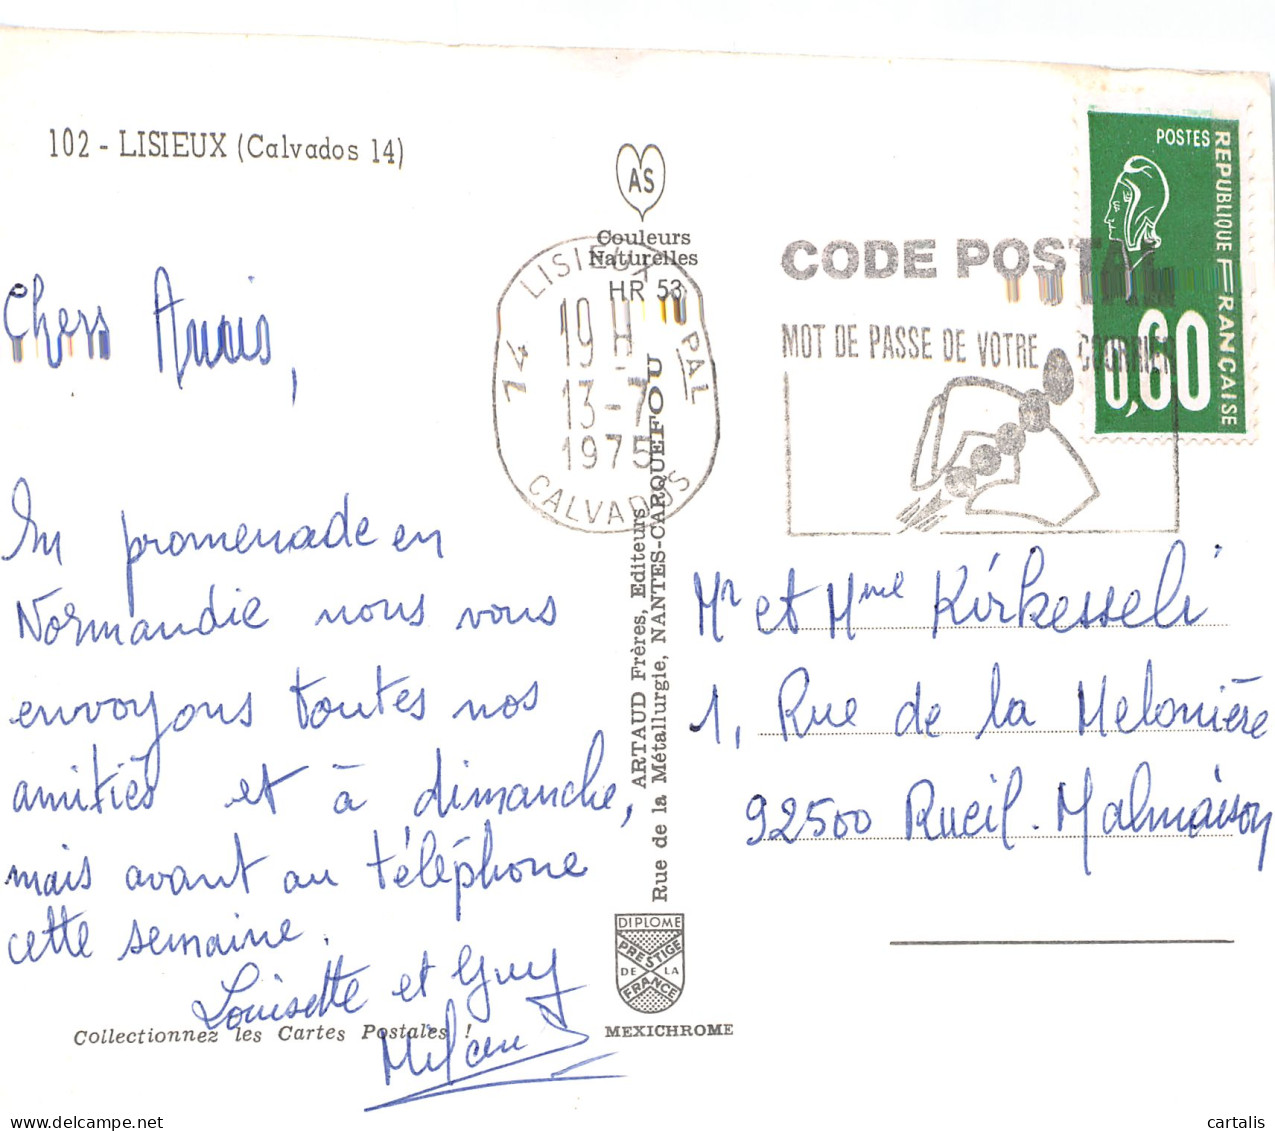 102 - LISIEUX (Calvados 14)
AS
Couleurs
Naturelles
HR 53
LISIEUX PAL
14
19 H
13-7
1975
CALVADOS
CODE POSTAL
MOT DE PASSE DE VOTRE COURRIER
POSTES
REPUBLIQUE FRANCAISE
0,60
Chers Amis,
En promenade en
Normandie nous vous
envoyons toutes nos
amitiés et à dimanche,
mais avant au téléphone
cette semaine.
Louisette et Guy
ARTAUD Frères, Editeurs
Rue de la Métallurgie, NANTES-CARQUEFOU
Mr et Mme Kirkesseli
1, Rue de la Melonière
92500 Rueil. Malmaison
DIPLOME
PRESTIGE
DE LA
FRANCE
MEXICHROME
Collectionnez les Cartes Postales !
cartalis
www.delcampe.net